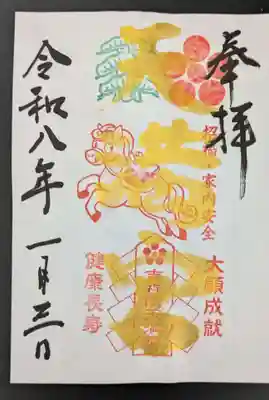 奉拝
招福 家内安全
大願成就
健康長寿
令和八年 一月三日